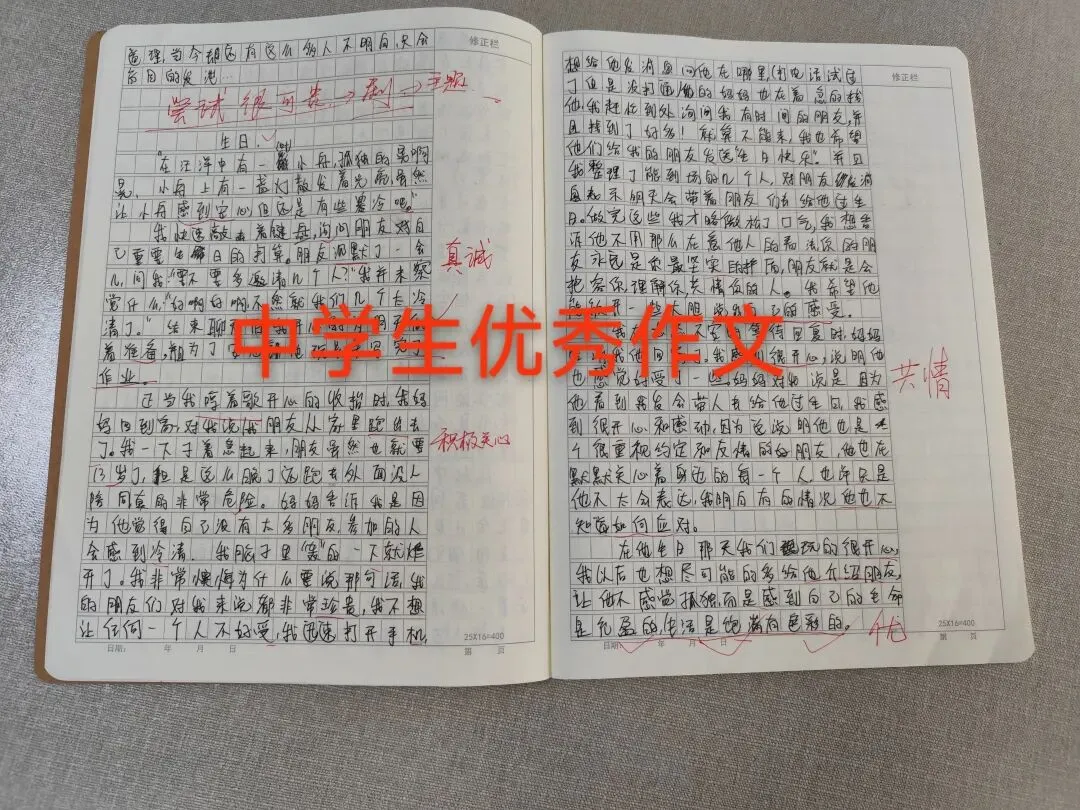 道理,当今却还有这么多人不明白,只会
盲目的
修正栏
尝试很可贵
生日
"在汪洋中有一小舟,孤独的
晃,小舟上有一盏灯散发着光亮虽然
让小舟感到安心但还是有些寒冷吧。"
我快速敲击着键盘,询问朋友对自
己重要生日的打算。朋友沉默了一会
儿,问我:"要不要多邀请几个人?"我并未察
觉什么,"好啊好啊不然就我们几个太冷
清了。"结束聊
着准备,
作业。
真诚
中学生优秀作文
正当我哼着歌开心的收拾时,我妈
妈回到家,对我说我朋友从家里跑出去
了。我一下子着急起来,朋友虽然也就要
13岁了,但是这么晚了还跑去外面没人
陪同真的非常危险。妈妈告诉我是因
为他觉得自己没有太多朋友,参加的人
会感到冷清。我脑子里"轰"的一下就炸
开了。我非常懊悔为什么要说那句话,我
的朋友们对我来说都非常珍贵,我不想
让任何一个人不好受,我迅速打开手机,
积极关心
25X16=400
日期: 年 月 日
第 页
修正栏
想给他发消息问他在哪里,打电话试
了但是没打通他的妈妈也在着急的找
他,我赶忙到处询问我有时间的朋友,并
且找到了好多!就算不能来,我也希望
他们给我的朋友发送"生日快乐"并且
我整理了能到场的几个人,对朋友
表示明天会带着朋友们去给他过生
日。做完这些我才略微松了口气,我想告
诉他不用那么在意他人的看法你的朋
友永远是你最坚实的护盾,朋友就是会
包容你,理解你,共情你的人。我希望他
的感受。
等待回复时,妈妈
我感到很开心,说明他
也感觉好受了一些,妈妈对我说是因为
他看到我发会带人去给他过生日,我感
到很开心和感动,因为这说明他也是一
个很重视约定和友情的好朋友,他也在
默默关心着身边的每一个人也许只是
他不太会表达,我明白有的情况他也不
知道如何应对。
共情
在他生日那天我们玩的很开心,
我以后也想尽可能的多给他介绍朋友,
让他不感觉孤独,而是感到自己的生命
是充盈的,生活是饱满有色彩的。
优
25X16=400
日期: 年 月 日
第 页